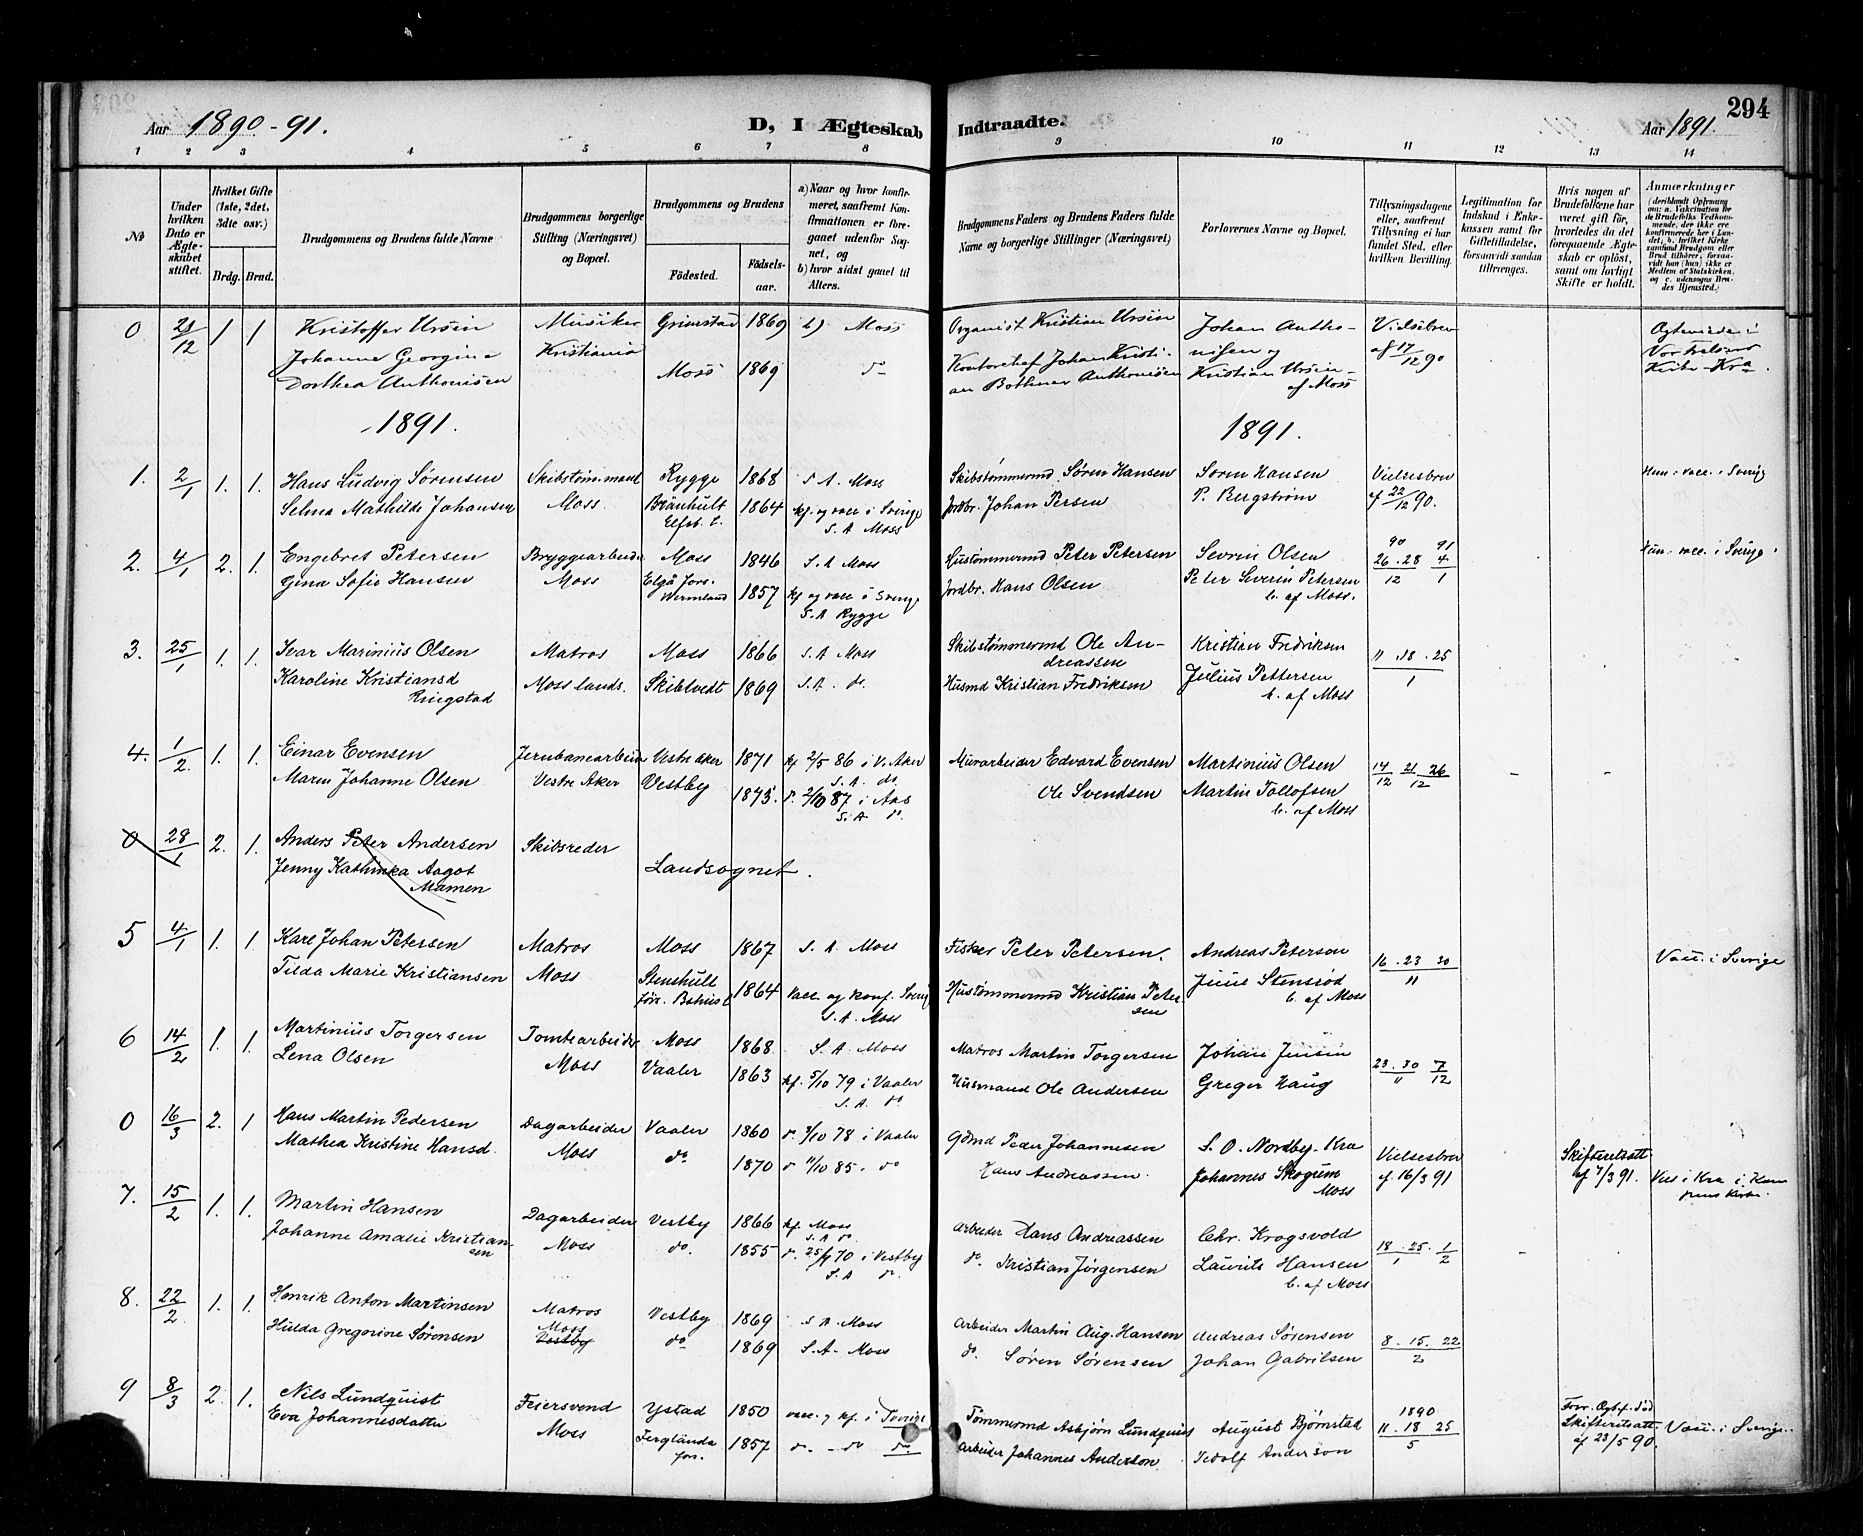 294
Aar 1890-91.
D, I Ægteskab
Indtraadte.
Aar 1891.
1 2 3 4 5 6 7 8 9 10 11 12 13 14
№
Under hvilken Dato er Ægteskabet stiftet.
Hvilket Gifte (1ste, 2det, 3dte osv.)
Brdg. Brud.
Brudgommens og Brudens fulde Navne
Brudgommens borgerlige Stilling (Næringsvei) og Bopæl.
Brudgommens og Brudens
Födested.
Födselsaar.
a) Naar og hvor konfirmeret, saafremt Konfirmationen er foregaaet udenfor Sognet, og
b) hvor sidst gaaet til Alters.
Brudgommens Faders og Brudens Faders fulde Navne og borgerlige Stillinger (Næringsvei)
Forlovernes Navne og Bopæl.
Tillysningsdagene eller, saafremt Tillysning ei har fundet Sted, efter hvilken Bevilling.
Legitimation for Indskud i Enkekassen samt for Giftetilladelse, forsaavidt saadan tiltrænges.
Hvis nogen af Brudefolkene har været gift før, hvorledes da det foregaaende Ægteskab er oplöst, samt om lovligt Skifte er holdt.
Anmærkninger
0 21/12 1 1 Kristoffer Ursin Musiker Grimstad 1869 b) Moss Organist Kristian Ursin Johan Antho- Vielsebrev
Johanne Georgine Kristiania Moss 1869 do Kontorchef Johan Kristi- nisen og af 17/12 90
Dorthea Anthonisen an Bothner Anthonisen Kristian Ursin af Moss
1891. 1891.
1. 2/1 1. 1. Hans Ludvig Sørensen Skibstømmand Rygge 1868 S. A. Moss Skibstømmermd. Søren Hansen Søren Hansen Vielsesbrev Hun: vacc. i Sverig
Selma Mathilde Johansen Moss. Brånhult 1864 kf. og vacc i Sverige Jordbr. Johan Persen P. Bergstrøm af 22/12 90.
S. A Moss
2. 4/1 2. 1. Engebret Petersen Bryggearbeider Moss 1846 S. A Moss Hustømmermd Peter Petersen Severin Olsen 90 26. 28/12 91 4/1 Hun. vacc. i Sverige.
Gina Sofie Hansen Moss Elgå Fors. Wermland 1857 kf og vacc i Sverige Jordbr. Hans Olsen Peter Severin Petersen
S. A Rygge b. af Moss.
3. 25/1 1. 1. Ivar Marinius Olsen Matros Moss 1866 S. A Moss Skibstømmermd Ole An- Kristian Fredriksen 11. 18. 25/1
dreassen
Karoline Kristiansd Moss lands. Skibtvedt 1869 S. A. do. Husmd Kristian Fredriksen Julius Pettersen
Ringstad b. af Moss
4. 1/2. 1. 1. Einar Evensen Jernbanearbeider Vestre Aker 1871 kf 2/5 86 i V. Aker Murarbeider Edvard Evensen Martinius Olsen 14/12 21 26/12
S. A. do
Maren Johanne Olsen Vestre Aker Vestby 1873. 2/10 87 i Aas Ole Svendsen Martin Tollofsen
S. A do. b. af Moss
0 28/1 2. 1. Anders Peter Andersen Skibsreder
Jenny Kathinka Aagot Landsognet.
Mamen
5 4/1 1. 1. Karl Johan Petersen Matros Moss 1867 S. A. Moss Fisker Peter Petersen. Andreas Peterson 16. 23 30/11 Vacc. i Sverige
Tilda Marie Kristiansen Moss Stenshult 1864 Vacc og konf. Sverig Hustømmermd Kristian Peter- Juul Stensrød
S. A. Moss sen b. af Moss
6 14/2 1. 1. Martinius Torgersen Tomtearbeider Moss 1868. S. A Moss Matros Martin Torgersen Johan Jensen 23. 30/11 7/12
Lena Olsen Moss Vaaler 1863 kf. 5/10 79 i Vaaler Husmand Ole Andersen Greger Haug
S. A. do
0 16/3 2. 1 Hans Martin Pedersen Dagarbeider Vaaler 1860 do. 7/10 78 i Vaaler Gdmd Peder Johannesen S. O. Nordby Kra Vielsesbrev Skifteretsatt
Mathea Kristine Hansd. Moss do 1870 do 11/10 85. do Hans Andreassen. Johannes Skogum af 16/3 91 af 7/3 91. Viet i Kra i
Moss
7. 15/2 1. 1. Martin Hansen Dagarbeider Vestby 1866 kf. Moss Arbeider Hans Andreassen Chr. Krogsvold 18. 25/1. 1/2
S. A do
Johanne Amalie Kristian- Moss do. 1855 do. 25/9 70 i Vestby do. Kristian Jørgensen Laurits Hansen
sen S. A do. b. af Moss
8. 22/2 1. 1. Henrik Anton Martinsen Matros Vestby 1869 S A Moss Arbeider Martin Aug. Hansen Andreas Sørensen 8. 15. 22/2
Moss
Hulda Gregorine Sørensen Vestby do 1869 S. A. Moss do. Søren Sørensen Johan Gabrilsen
9 8/3 2. 1. Nils Lundquist Feiersvend Ystad 1850 vacc. og kf. i Sverige Tømmermd Asbjørn Lundquist August Bjørnstad 1890 11. 18 25/5 Forr. Ægt. f. død Skifteretsatt Vacc. i Sverige.
Eva Johannesdatter Moss Ferglanda fors. 1857 do. - do do Arbeider Johannes Anderson. Tedolf Anderson af 23/5 90.